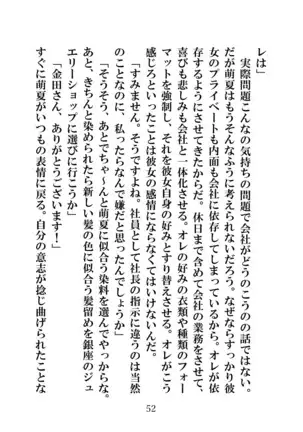 レは」
　実際問題こんなの気持ちの問題で会社がどうのこうのの話ではない。
だが萌夏はもうそんなふうに考えられないだろう。なぜならすっかり彼
女のプライベートも内面も会社に依存してしまっているから。オレが依
存するようにさせてきたからだ。休日まで含めて会社の業務をさせて、
喜びも悲しみも会社と一体化させる。オレの好みの衣類や種類のフォー
マットを強制し、それを彼女自身の好みとすり替えさせる。オレがこう
感じろといったことは彼女の感情にならなくてはいけないんだ。
「すみません。そうですよね。社員として社長の指示に違うのは当然
のことなのに、私ったらなんで嫌だと思ったんでしょうか」
「そうそう、あとでちゃ〜んと萌夏に似合う染料を選んでやっからな。
あと、きちんと染められたら新しい髪の色に似合う髪留めを銀座のジュ
エリーショップに選びに行こうか」
「金田さん、ありがとうございます！」
すぐに萌夏がいつもの表情に戻る。自分の意志が捻じ曲げられたことな
52